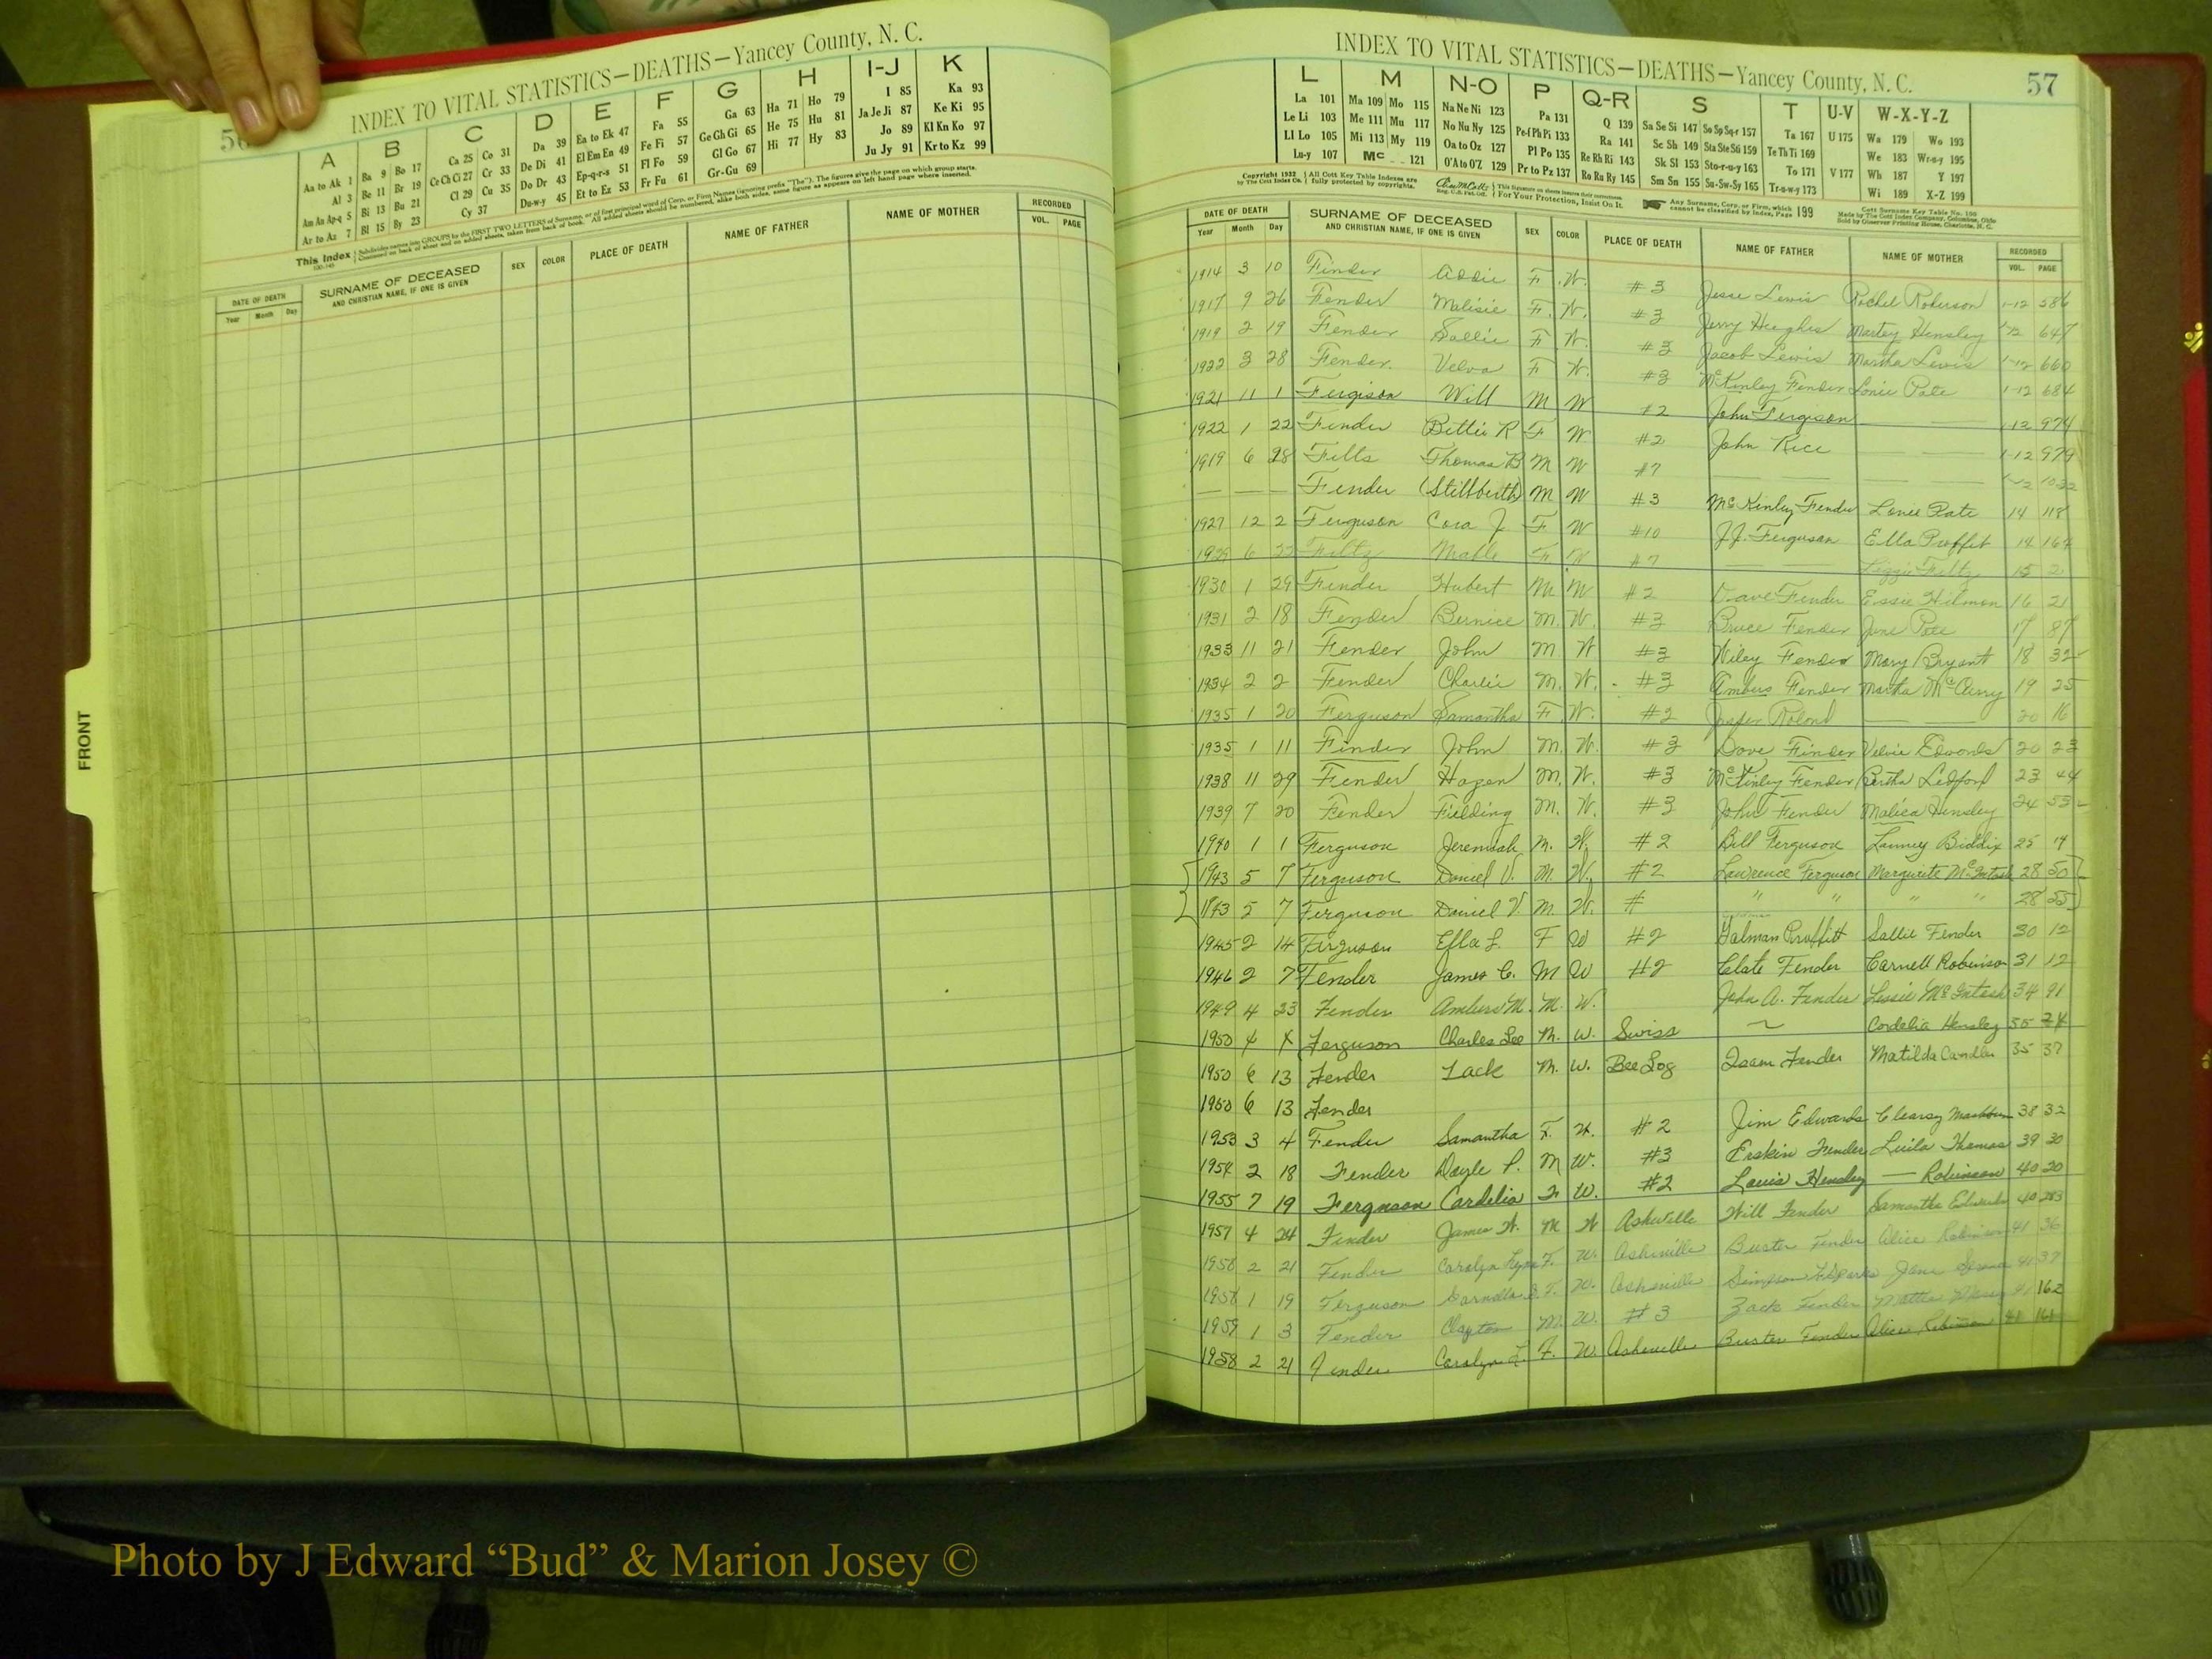 56
INDEX TO VITAL STATISTICS—DEATHS—Yancey County, N. C.
A B C D E F G H I-J K
Aa to Ak 1 Ba 9 Bo 17 Ca 25 Co 31 Da 39 Ea to Ek 47 Fa 55 Ga 63 Ha 71 Ho 79 I 85 Ka 93
Al 3 Be 11 Br 19 Ce Ch Ci 27 Cr 33 De Di 41 El Em En 49 Fe Fi 57 Ge Gh Gi 65 He 75 Hu 81 Ja Je Ji 87 Ke Ki 95
Am An Ap-q 5 Bi 13 Bu 21 Cl 29 Cu 35 Do Dr 43 Ep-q-r-s 51 Fl Fo 59 Gl Go 67 Hi 77 Hy 83 Jo 89 Kl Kn Ko 97
Ar to Az 7 Bl 15 By 23 Cy 37 Du-w-y 45 Et to Ez 53 Fr Fu 61 Gr-Gu 69 Ju Jy 91 Kr to Kz 99
This Index Subdivides names into GROUPS by the FIRST TWO LETTERS of Surname, or of first principal word of Corp. or Firm Names (ignoring prefix "The"). The figures give the page on which group starts.
Continued on back of sheet and on added sheets, taken from back of book. All added sheets should be numbered, alike both sides, same figure as appears on left hand page where inserted.
DATE OF DEATH SURNAME OF DECEASED SEX COLOR PLACE OF DEATH NAME OF FATHER NAME OF MOTHER RECORDED
Year Month Day AND CHRISTIAN NAME, IF ONE IS GIVEN VOL. PAGE
FRONT
INDEX TO VITAL STATISTICS—DEATHS—Yancey County, N. C. 57
L M N-O P Q-R S T U-V W-X-Y-Z
La 101 Ma 109 Mo 115 Na Ne Ni 123 Pa 131 Q 139 Sa Se Si 147 So Sp Sq-r 157 Ta 167 U 175 Wa 179 Wo 193
Le Li 103 Me 111 Mu 117 No Nu Ny 125 Pe-f Ph Pi 133 Ra 141 Sc Sh 149 Sta Ste Sti 159 Te Th Ti 169 We 183 Wr-u-y 195
Ll Lo 105 Mi 113 My 119 Oa to Oz 127 Pl Po 135 Re Rh Ri 143 Sk Sl 153 Sto-r-u-y 163 To 171 V 177 Wh 187 Y 197
Lu-y 107 Mc 121 O'A to O'Z 129 Pr to Pz 137 Ro Ru Ry 145 Sm Sn 155 Su-Sw-Sy 165 Tr-u-w-y 173 Wi 189 X-Z 199
Copyright 1932 by The Cott Index Co. All Cott Key Table Indexes are fully protected by copyrights. This signature on sheets insures their genuineness For Your Protection, Insist On It. Any Surname, Corp. or Firm, which cannot be classified by Index, Page 199 Cott Surname Key Table No. 100 Made by The Cott Index Company, Columbus, Ohio Sold by Observer Printing House, Charlotte, N. C.
DATE OF DEATH SURNAME OF DECEASED SEX COLOR PLACE OF DEATH NAME OF FATHER NAME OF MOTHER RECORDED
Year Month Day AND CHRISTIAN NAME, IF ONE IS GIVEN VOL. PAGE
1914 3 10 Finder Addie F. W. #3 Jesse Lewis Rachel Roberson 1-12 586
1917 9 26 Fender Malisie F. W. #3 Jerry Hughes Martey Hensley 1-12 647
1919 2 19 Fender Sallie F. W. #3 Jacob Lewis Martha Lewis 1-12 660
1922 3 28 Fender Velva F W. #3 McKinley Fender Lonie Pate 1-12 684
1921 11 1 Fergison Will M W #2 John Fergison 1-12 974
1922 1 22 Fender Bettie R F W #2 John Rice 1-12 979
1919 6 28 Fills Thomas B M W #7 1-12 1032
— — — Fender (Stillbirth) M W #3 McKinley Fender Lonee Pate 14 118
1927 12 2 Ferguson Cora J. F W #10 J.J. Ferguson Ella Proffit 14 164
6 22 Feltz F W #7 Lizzie Feltz 15 2
1930 1 29 Fender Hubert M W #2 Dave Fender Essie Hilemon 16 21
1931 2 18 Fender Bernice M. W. #3 Bruce Fender June Pate 17 87
1933 11 21 Fender John M W #3 Wiley Fender Mary Bryant 18 32
1934 2 2 Fender Charlie M. W. #3 Ambers Fender Martha McCurry 19 25
1935 1 20 Ferguson Samantha F. W. #2 Jasper Roland — 20 16
1935 1 11 Finder John M. W. #3 Dave Finder Velvie Edwards 20 23
1938 11 29 Fender Hazen M. W. #3 McKinley Fender Bertha Ledford 23 44
1939 7 20 Fender Fielding M. W. #3 John Fender Malica Hensley 24 53
1940 1 1 Ferguson Jeremiah M. W. #2 Bill Ferguson Biddix 25 14
1943 5 7 Ferguson Daniel V. M. W. #2 Lawrence Ferguson Marguerite McIntosh 28 50
1943 5 7 Ferguson Daniel V. M. W. # " " " " 28 25
1945 2 14 Ferguson Ella L. F W #2 Proffitt Sallie Fender 30 12
1946 2 7 Fender James C. M W #2 Clate Fender Carnell Robinson 31 12
1949 4 23 Fender Ambers M. M. W. John A. Fender Lessie McIntosh 34 91
1950 4 X Ferguson Charles Lee M. W. Swiss ~ Cordelia Hensley 35 24
1950 6 13 Fender Zack M. W. Bee Log Isam Fender Matilda Candler 35 37
1950 6 13 Fender
1953 3 4 Fender Samantha F. W. #2 Jim Edwards Clearsy Mashburn 38 32
1954 2 18 Fender Doyle P. M W. #3 Erskin Fender Luila Thomas 39 30
1955 7 19 Ferguson Cordelia F W. #2 Louis Hensley — Robinson 40 20
1957 4 24 Fender James W. M W Asheville Will Fender Samantha Edwards 40 283
1958 2 21 Fender Carolyn Lynn F. W. Asheville Buster Fender Alice Robinson 41 36
1958 1 19 Ferguson F. W. Asheville Simpson Jane 41 37
1959 1 3 Fender Clayton M. W. #3 Zack Fender 41 162
1958 2 21 Fender Carolyn L. F. W. Asheville Buster Fender Alice Robinson 41 161
Photo by J Edward “Bud” & Marion Josey ©